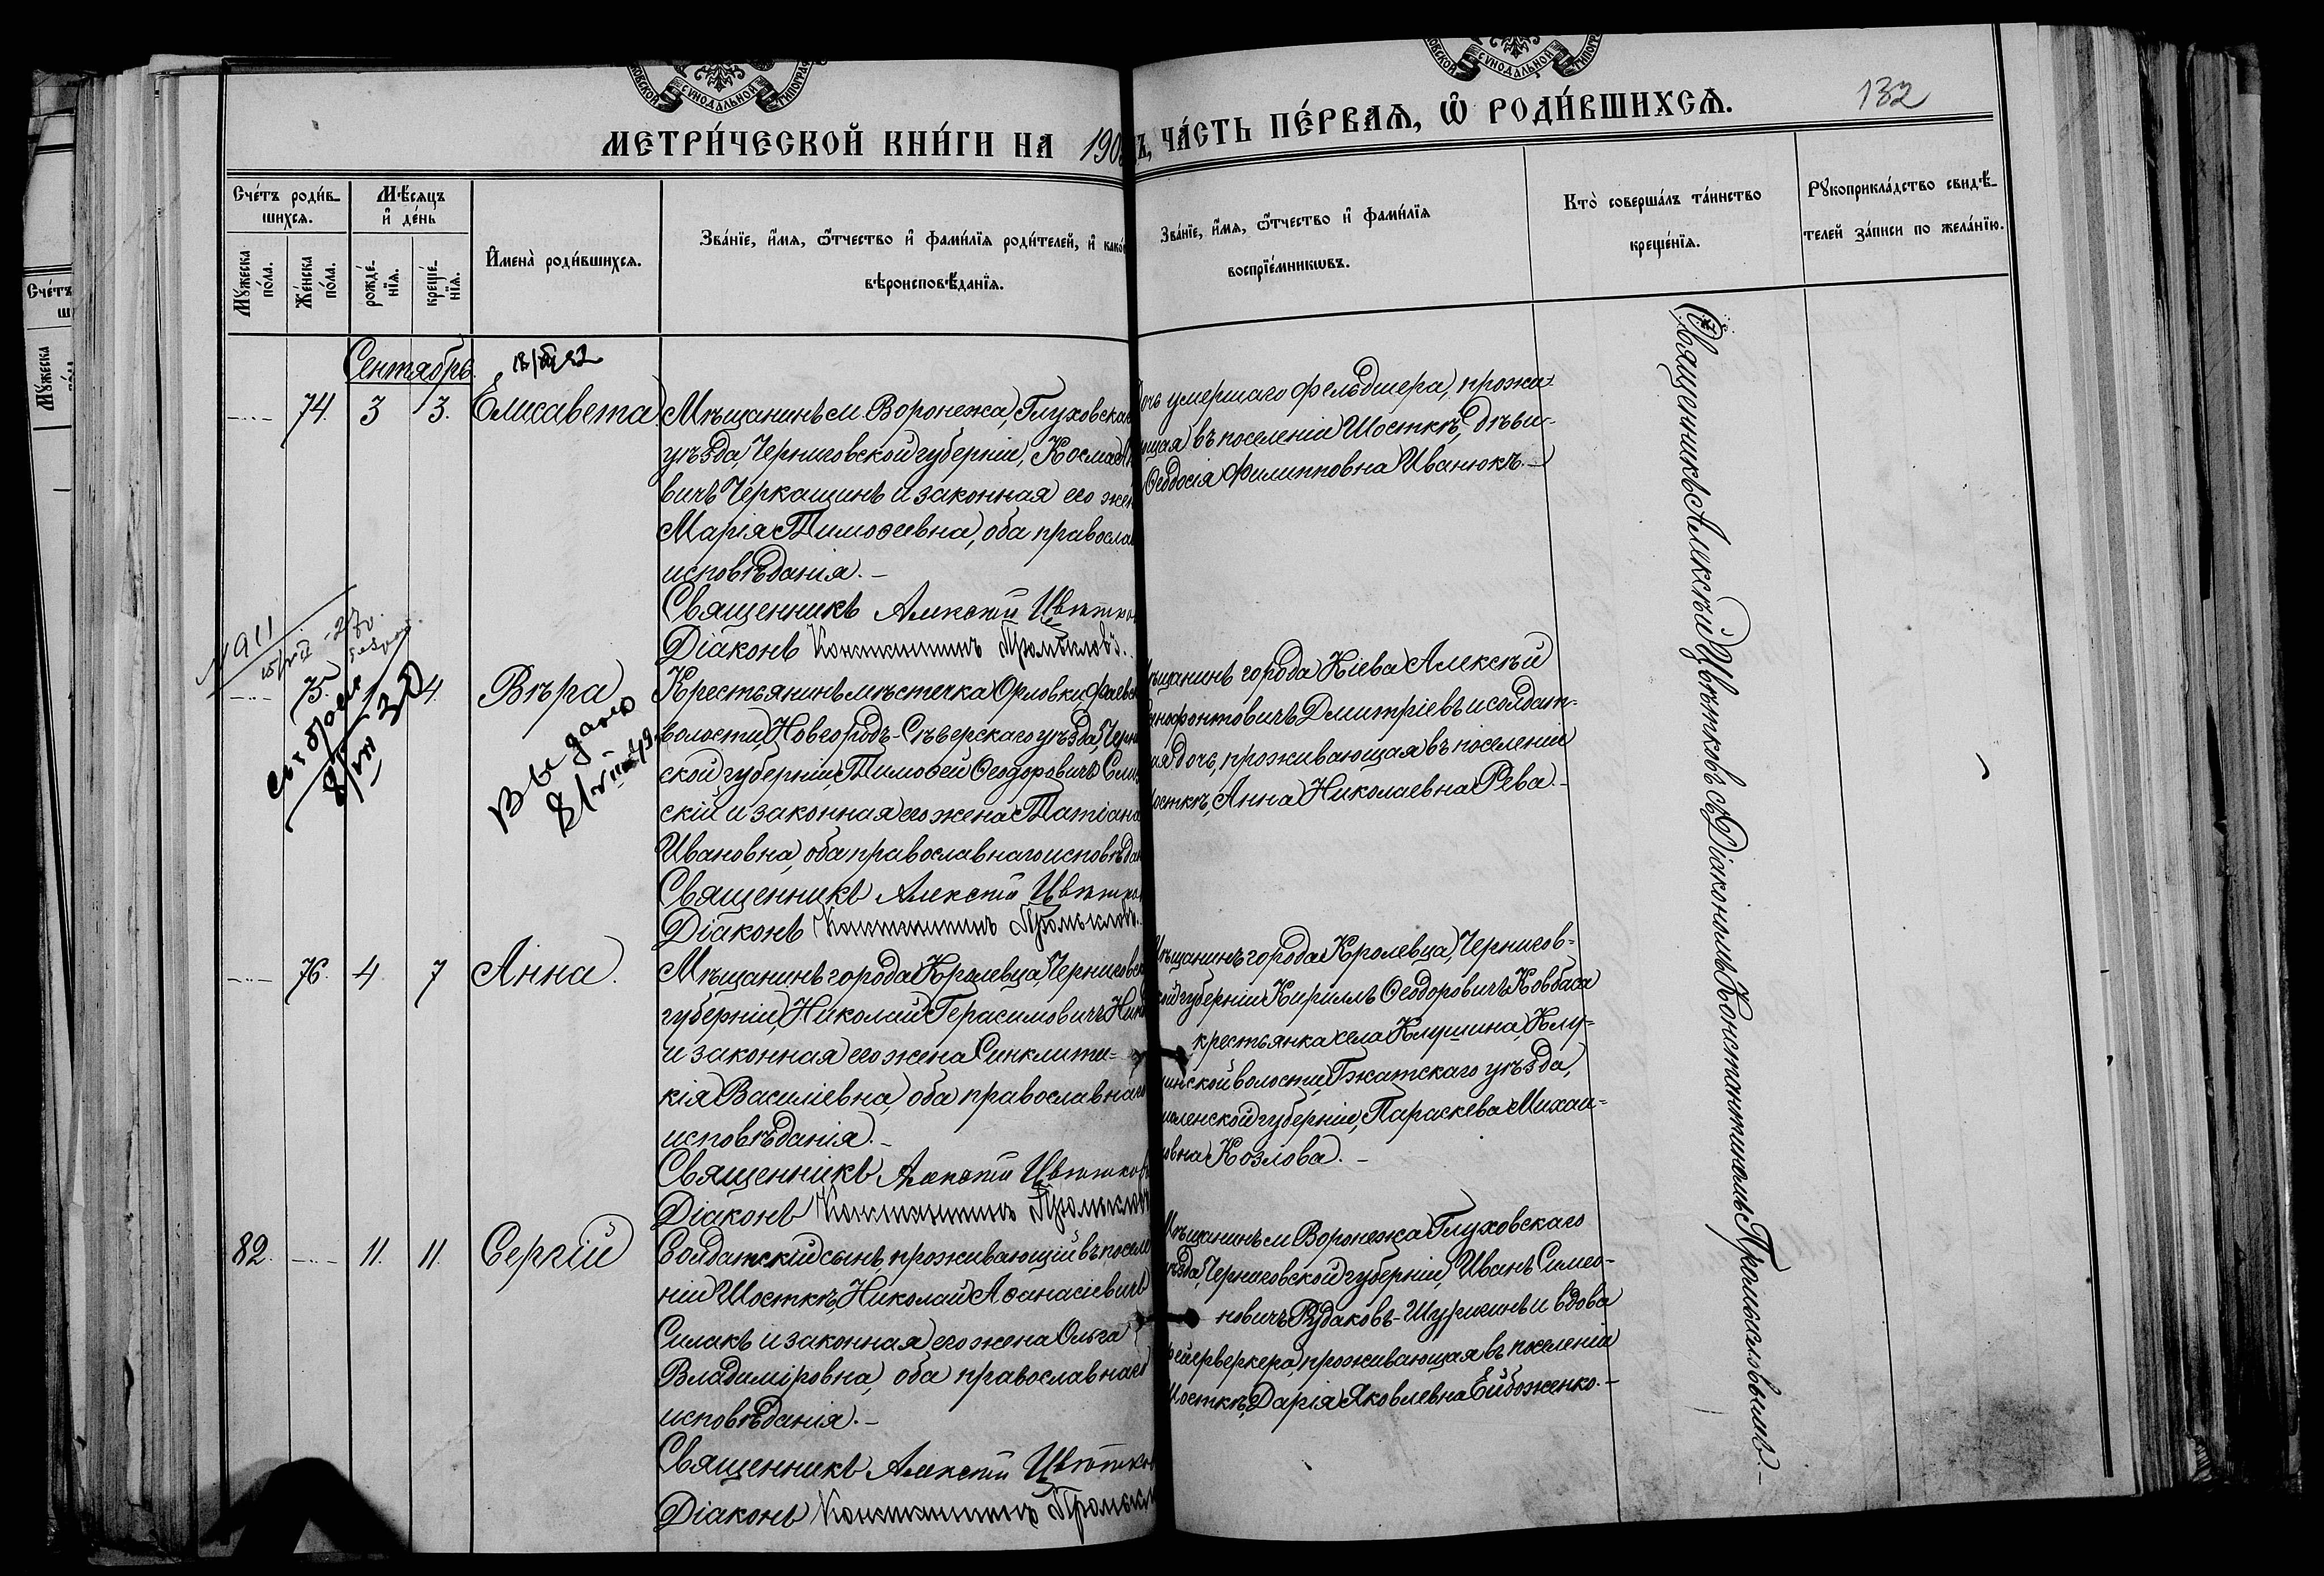 МОСКОВСКОЙ СѴНОДАЛЬНОЙ ТИПОГРАФ
132
МЕТРИ́ЧЕСКОЙ КНИ́ГИ НА 190
Ъ, ЧА́СТЬ ПЕ́РВАѦ, Ѿ РОДИ́ВШИХСѦ.
Сче́тъ роди́в-
шихсѧ.
Мѣ́сѧцъ
и҆ де́нь
Мꙋ́жеска
по́ла.
Же́нска
по́ла.
рожде́-
нїѧ.
креще́-
нїѧ.
И҆мена̀ роди́вшихсѧ.
Зва́нїе, и҆́мѧ, ѻ҆́тчество и҆ фами́лїѧ роди́телей, и҆ како́
вѣроисповѣ́данїѧ.
Зва́нїе, и҆́мѧ, ѻ҆́тчество и҆ фами́лїѧ
воспрїе́мникѡвъ.
Кто̀ соверша́лъ та́инство
креще́нїѧ.
Рꙋкоприкла́дство свидѣ́-
телей за́писи по жела́нїю.
Сентябрь.
74. 3 3. Елисавета
Мѣщанинъ м. Воронежа, Глуховска
уѣзда, Черниговской губерніи, Косма
вичъ Черкашинъ и законная его жен
Марія Тимоѳеевна, оба правосла
исповѣданія.–
Священникъ Алексій Цвѣтко
Діаконъ Константинъ Промысловъ.
очь умершаго фельдшера, прожи-
щая въ поселеніи Шосткѣ, дѣви-
Ѳеодосія Филипповна Иванюкъ.–
75. 4. Вѣра
Выдано
Крестьянинъ мѣстечка Орловки,
волости, Новгородъ-Сѣверскаго уѣзда, Черни
ской губерніи, Тимоѳей Ѳеодоровичъ
скій и законная его жена Татіана
Ивановна, оба православнаго исповѣдан
Священникъ Алексій Цвѣтко
Діаконъ Константинъ Промысловъ.
ѣщанинъ города Кіева Алексѣй
нофонтовичъ Дмитріевъ и солдат-
ая дочь, проживающая въ поселеніи
осткѣ, Анна Николаевна Рева.–
76. 4 7 Анна.
Мѣщанинъ города Кролевца, Черниговск
губерніи, Николай Герасимовичъ
и законная его жена Синклити-
кія Василіевна, оба православнаго
исповѣданія.–
Священникъ Алексій Цвѣтковъ
Діаконъ Константинъ Промыслов
ѣщанинъ города Кролевца, Чернигов-
кой губерніи Кириллъ Ѳеодоровичъ Ковбаса
крестьянка села Клушина, Клу-
инской волости, Гжатскаго уѣзда,
моленской губерніи, Параскева Михаи-
овна Козлова.–
82. 11. 11. Сергій
Солдатскій сынъ, проживающій въ поселе
ніи Шосткѣ, Николай Аѳанасіевичъ
Силакъ и законная его жена Ольга
Владиміровна, оба православнаго
исповѣданія.–
Священникъ Алексій Цвѣтков
Діаконъ Константинъ Промысл
ѣщанинъ м. Воронежа Глуховскаго
ѣзда, Черниговской губерніи, Иванъ Симео-
новичъ Рудаковъ-Шуригинъ и вдова
фейерверкера, проживающая въ поселеніи
Шосткѣ, Дарія Яковлевна Ейбоженко.–
Священникъ Алексѣй Цвѣтковъ съ Діакономъ Константиномъ Промысловымъ.–